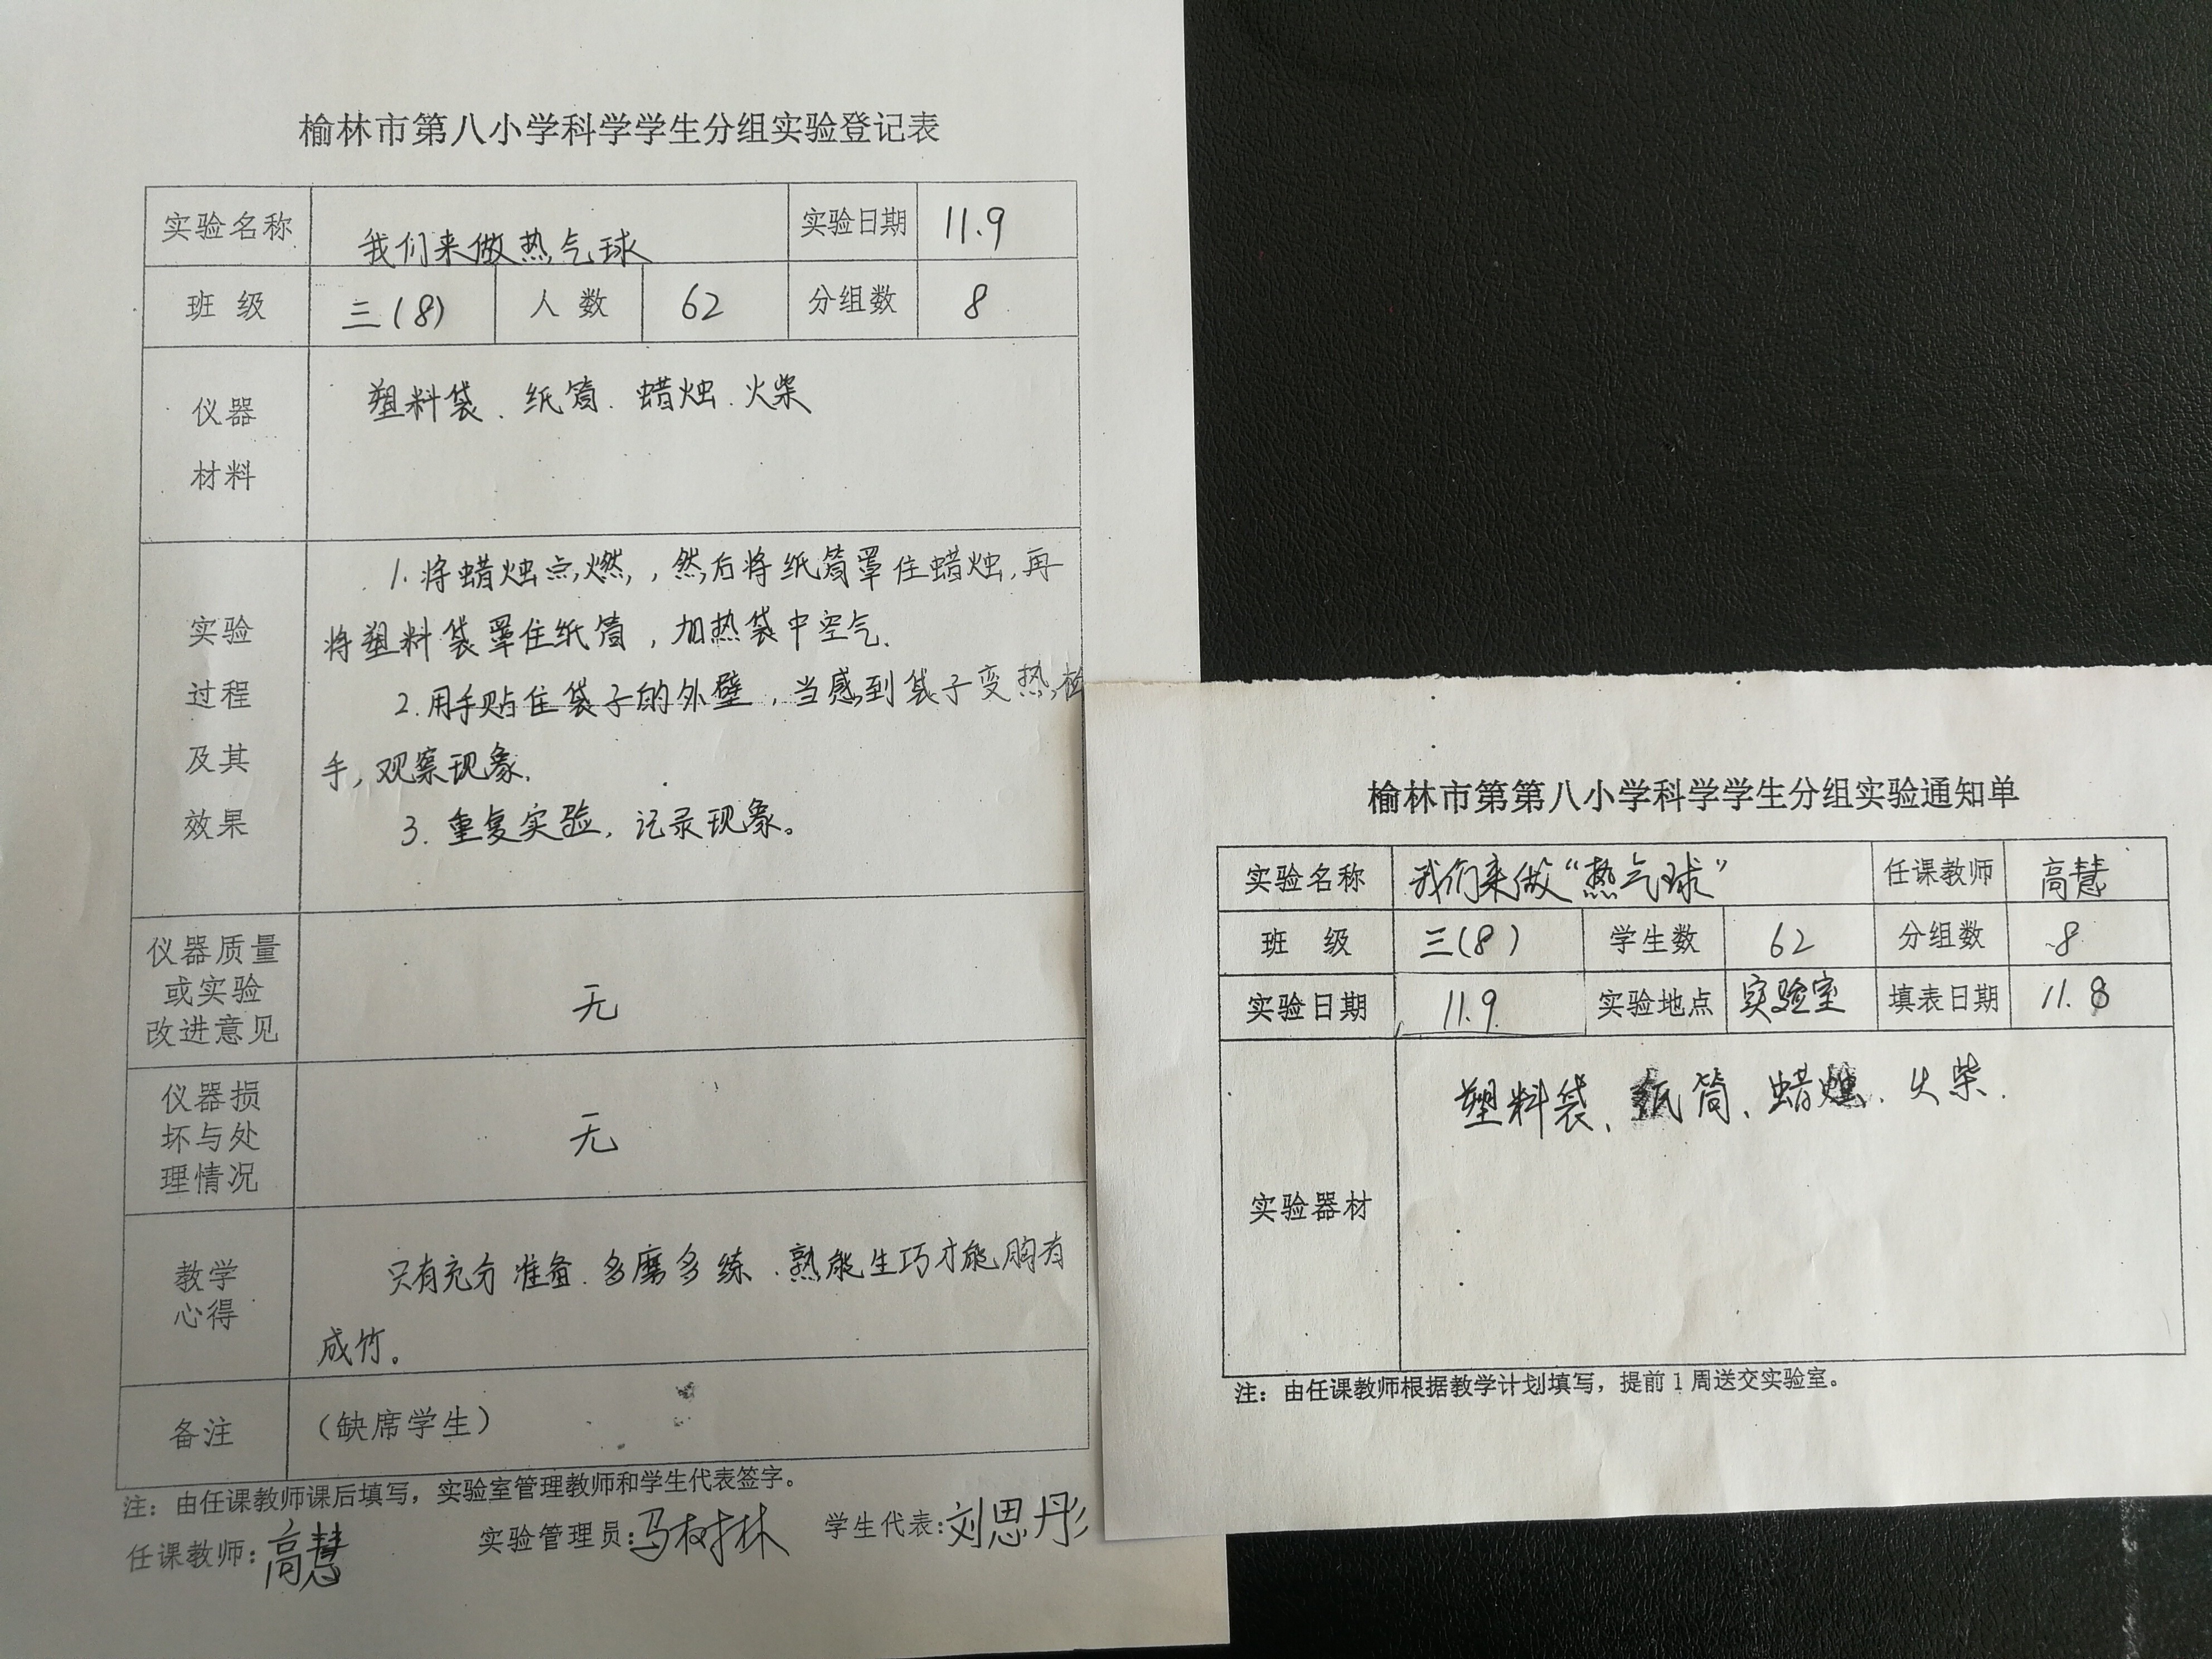 榆林市第八小学科学学生分组实验登记表
实验名称 我们来做热气球 实验日期 11.9
班 级 三(8) 人 数 62 分组数 8
仪器
材料
塑料袋、纸筒、蜡烛、火柴
实验
过程
及其
效果
1.将蜡烛点燃,然后将纸筒罩住蜡烛,再
将塑料袋罩住纸筒,加热袋中空气.
2.用手贴住袋子的外壁,当感到袋子变热,
手,观察现象.
3.重复实验,记录现象。
仪器质量
或实验
改进意见
无
仪器损
坏与处
理情况
无
教学
心得
只有充分准备.多磨多练.熟能生巧才能胸有
成竹。
备注 (缺席学生)
注：由任课教师课后填写，实验室管理教师和学生代表签字。
任课教师:高慧 实验管理员:马树林 学生代表:刘思彤
榆林市第第八小学科学学生分组实验通知单
实验名称 我们来做“热气球” 任课教师 高慧
班 级 三(8) 学生数 62 分组数 8
实验日期 11.9. 实验地点 实验室 填表日期 11.8
实验器材
塑料袋、纸筒、蜡烛、火柴.
注：由任课教师根据教学计划填写，提前 1 周送交实验室。